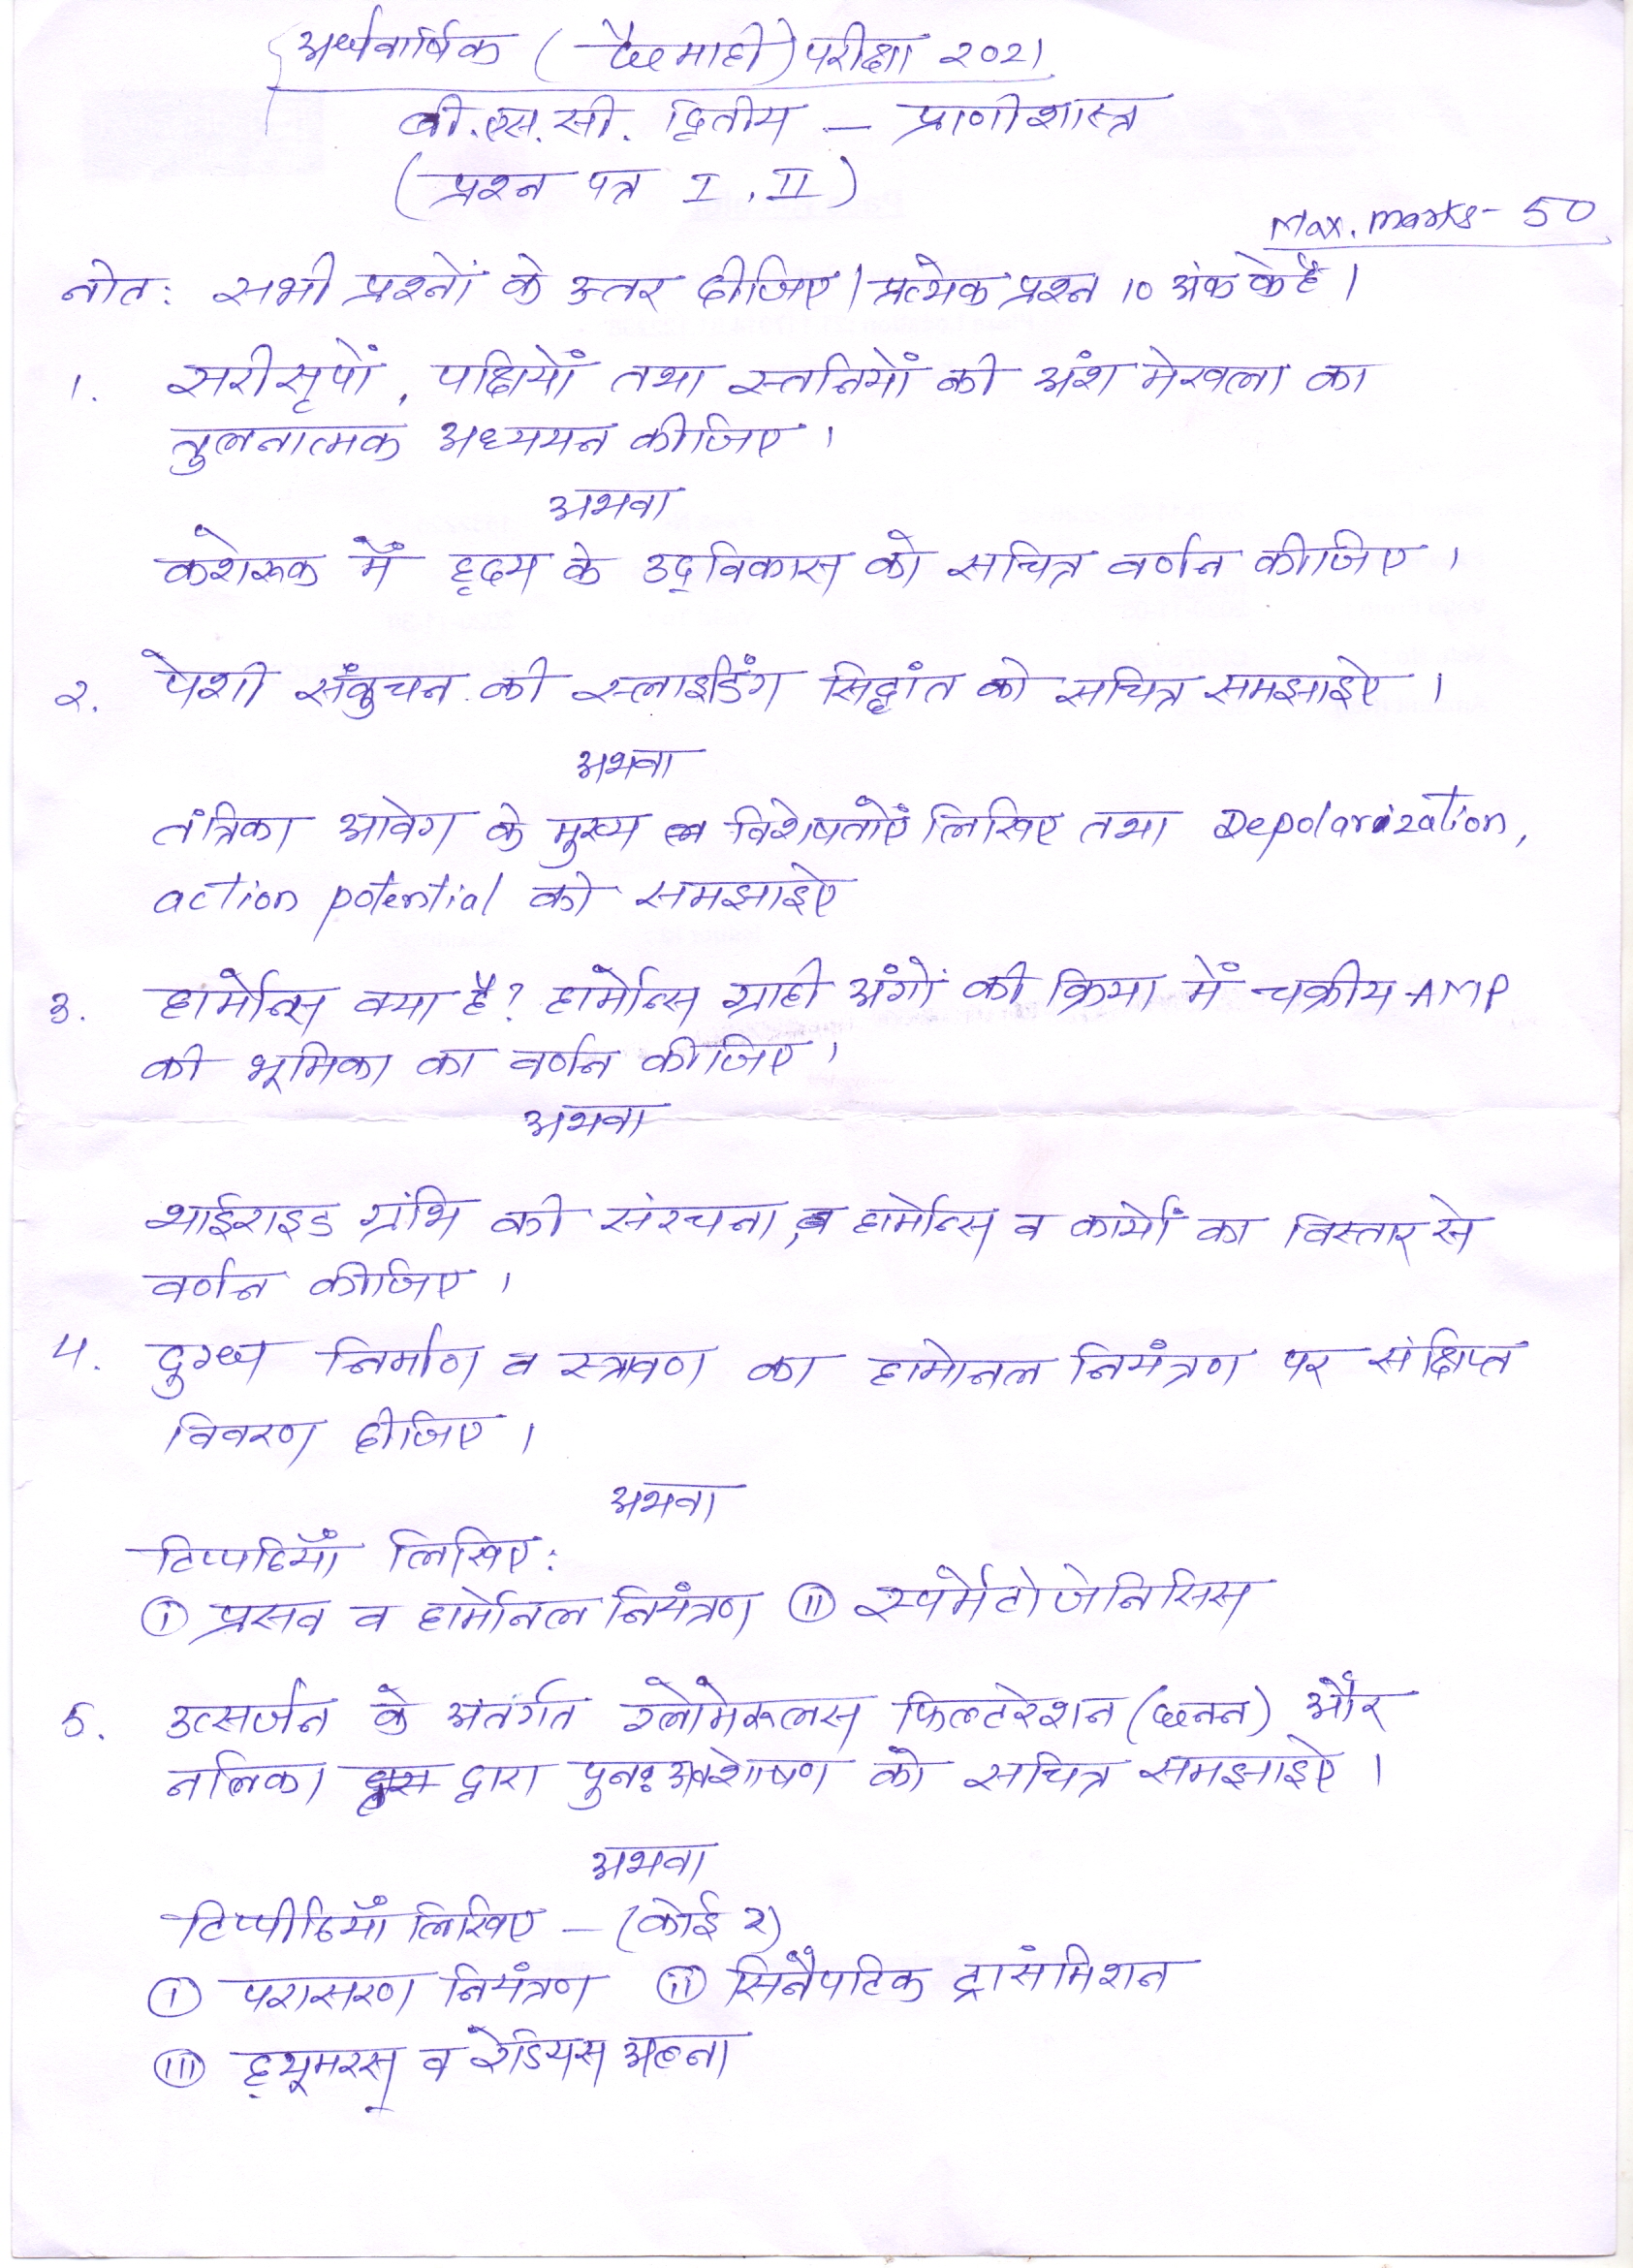 अर्धवार्षिक (छैःमाही) परीक्षा २०२१
बी.एस.सी. द्वितीय – प्राणीशास्त्र
(प्रश्न पत्र I, II)
Max. marks - 50
नोट: सभी प्रश्नों के उत्तर दीजिए। प्रत्येक प्रश्न 10 अंक के है।
1. सरीसृपों, पक्षियों तथा स्तनियों की अंश मेखला का
तुलनात्मक अध्ययन कीजिए।
अथवा
कशेरूक में हृदय के उद्‌विकास को सचित्र वर्णन कीजिए।
२. पेशी संकुचन की स्लाइडिंग सिद्धांत को सचित्र समझाइऐ।
अथवा
तंत्रिका आवेग के मुख्य विशेषताऐं लिखिए तथा Depolarization,
action potential को समझाइऐ
3. हार्मोन्स क्या है? हार्मोन्स ग्राही अंगों की क्रिया में चक्रीय-AMP
की भूमिका का वर्णन कीजिए।
अथवा
थाईराइड ग्रंथि की संरचना, हार्मोन्स व कार्यों का विस्तार से
वर्णन कीजिए।
4. दुग्ध निर्माण व स्त्रावण का हार्मोनल नियंत्रण पर संक्षिप्त
विवरण दीजिए।
अथवा
टिप्पणियाँ लिखिए:
(i) प्रसव व हार्मोनल नियंत्रण (ii) स्पर्मेटोजेनिसिस
5. उत्सर्जन के अतंर्गत ग्लोमेरूलस फिल्टरेशन (छनन) और
नलिका द्वारा पुनः अवशोषण को सचित्र समझाइऐ।
अथवा
टिप्पीणियाँ लिखिए – (कोई २)
(i) परासरण नियंत्रण (ii) सिनैपटिक ट्रांसमिशन
(iii) ह्यूमरस् व रेडियस अल्ना